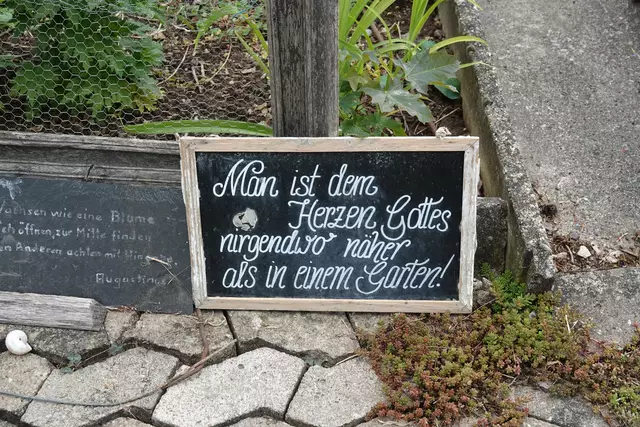 Man ist dem
Herzen Gottes
nirgendwo näher
als in einem Garten!
wie eine Blume
öffnen, zur Mitte finden
Anderen achten mit
Augustinus